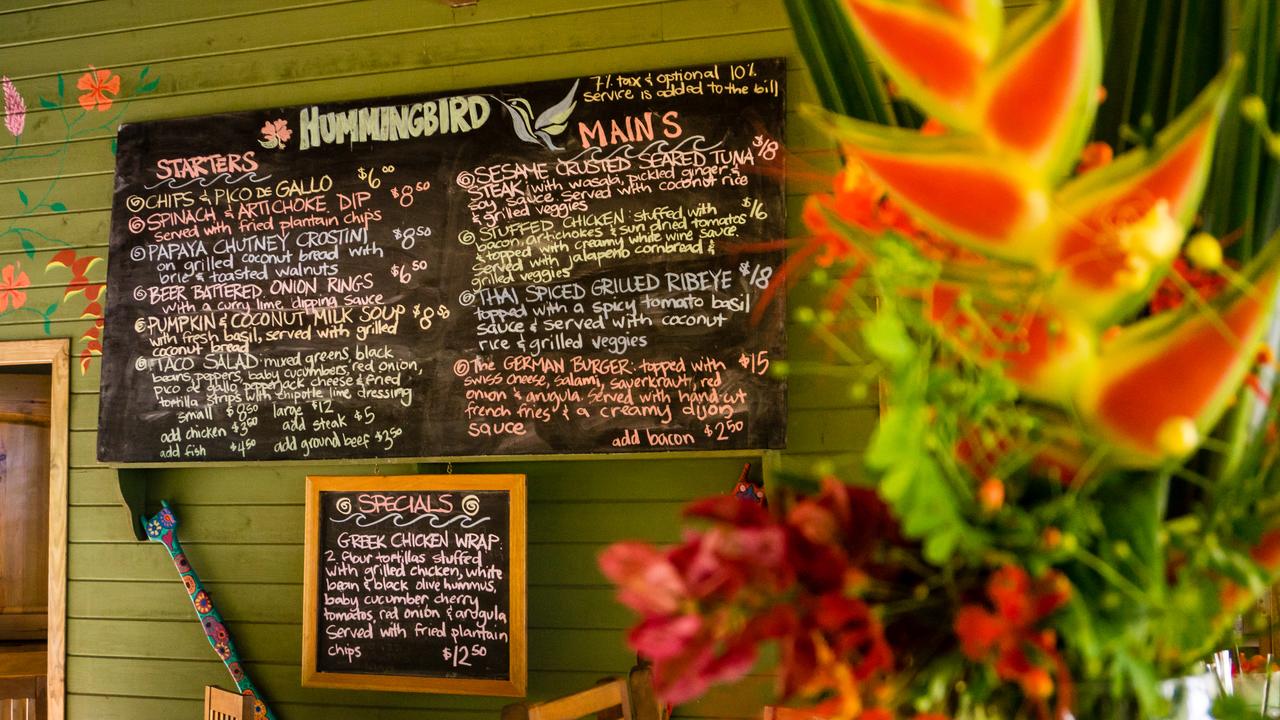 HUMMINGBIRD
7% tax & optional 10%
service is added to the bill
STARTERS
CHIPS & PICO DE GALLO $6⁰⁰
SPINACH & ARTICHOKE DIP $8⁵⁰
served with fried plantain chips
PAPAYA CHUTNEY CROSTINI $8⁵⁰
on grilled coconut bread with
brie & toasted walnuts
BEER BATTERED ONION RINGS $6⁵⁰
with a curry lime dipping sauce
PUMPKIN & COCONUT MILK SOUP $8⁵⁰
with fresh basil, served with grilled
coconut bread
TACO SALAD: mixed greens, black
beans, peppers, baby cucumbers, red onion,
pico de gallo, pepperjack cheese & fried
tortilla strips with chipotle lime dressing
small large $12
add chicken $3⁵⁰ add steak $5
add fish $4⁵⁰ add ground beef $3⁵⁰
MAIN'S
SESAME CRUSTED SEARED TUNA $18
STEAK: with wasabi, pickled ginger &
soy sauce. Served with coconut rice
& grilled veggies
STUFFED CHICKEN: stuffed with $16
bacon, artichokes & sun dried tomatoes
& topped with creamy white wine sauce.
Served with jalapeño cornbread &
grilled veggies
THAI SPICED GRILLED RIBEYE $18
topped with a spicy tomato basil
sauce & served with coconut
rice & grilled veggies
The GERMAN BURGER: topped with $15
swiss cheese, salami, sauerkraut, red
onion & arugula. Served with hand cut
french fries & a creamy dijon
sauce
add bacon $2⁵⁰
SPECIALS
GREEK CHICKEN WRAP:
2 flour tortillas stuffed
with grilled chicken, white
bean & black olive hummus,
baby cucumber cherry
tomatoes, red onion & arugula
Served with fried plantain
chips $12⁵⁰